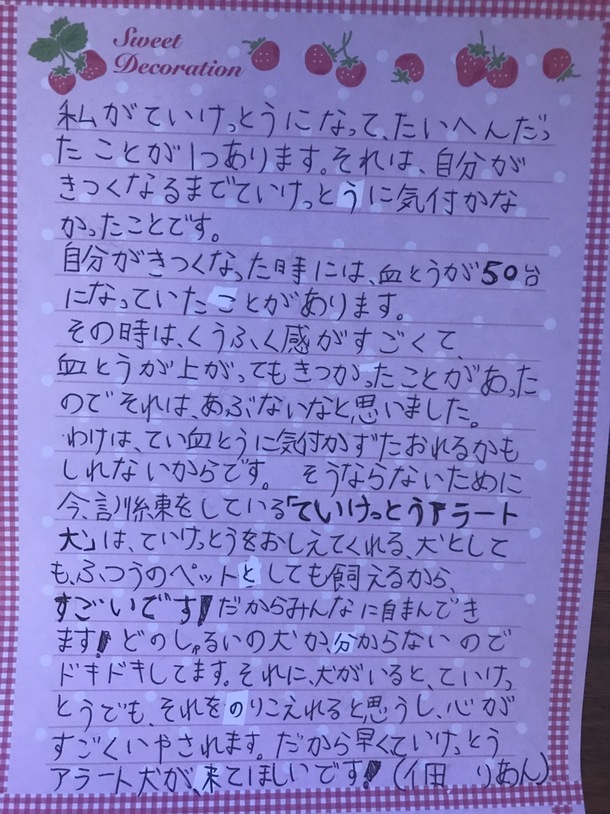 Sweet
Decoration
私がていけっとうになって、たいへんだっ
たことが1つあります。それは、自分が
きつくなるまでていけっとうに気付かな
かったことです。
自分がきつくなった時には、血とうが50台
になっていたことがあります。
その時は、くうふく感がすごくて、
血とうが上がってもきつかったことがあった
のでそれは、あぶないなと思いました。
わけは、てい血とうに気付かずたおれるかも
しれないからです。 そうならないために
今、訓練をしている「ていけっとうアラート
犬」は、ていけっとうをおしえてくれる、犬として
も、ふつうのペットとしても飼えるから、
すごいです!だからみんなに自まんでき
ます!どのしゅるいの犬か分からないので
ドキドキしてます。それに、犬がいると、ていけっ
とうでも、それをのりこえれると思うし、心が
すごくいやされます。だから早くていけっとう
アラート犬が、来てほしいです!( りあん)